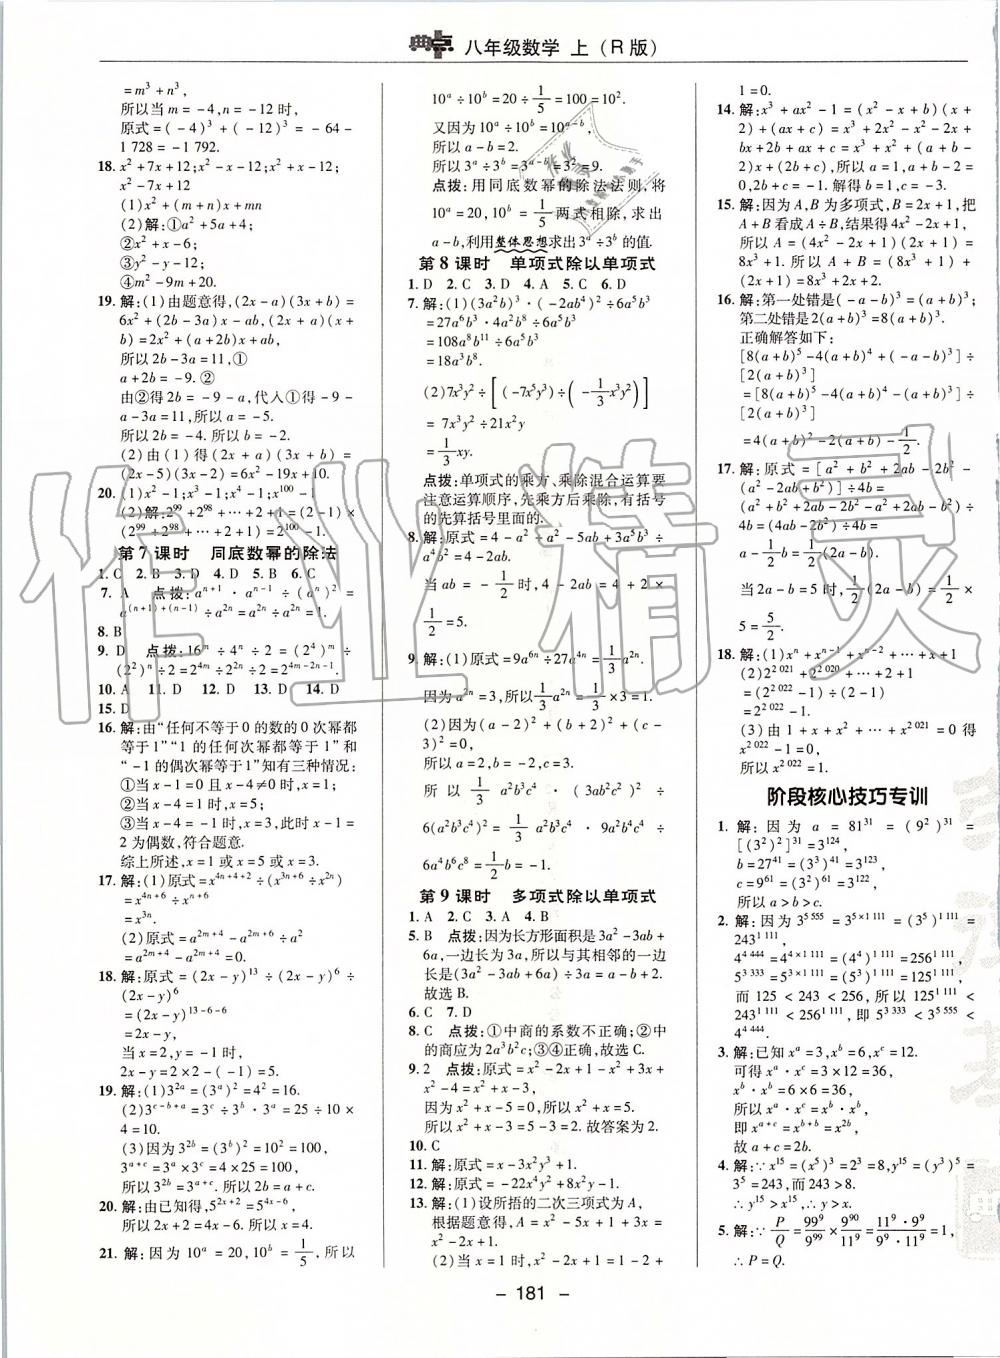 典点 八年级数学 上（R版）
=m³+n³.
所以当 m=-4,n=-12时,
原式=(-4)³+(-12)³=-64-
1 728=-1 792.
18. x²+7x+12;x²-x-12;x²+x-12;
x²-7x+12
(1)x²+(m+n)x+mn
(2)解:①a²+5a+4;
②x²+x-6;
③y²-y-12;
④m²-9m+20.
19. 解:(1)由题意得,(2x-a)(3x+b)=
6x²+(2b-3a)x-ab,(2x+a)(x+
b)=2x²+(a+2b)x+ab,
所以2b-3a=11,①
a+2b=-9.②
由②得2b=-9-a,代入①得-9-
a-3a=11,所以a=-5.
所以2b=-4.所以b=-2.
(2)由(1)得(2x+a)(3x+b)=
(2x-5)(3x-2)=6x²-19x+10.
20. (1)x²-1;x³-1;x⁴-1;x¹⁰⁰-1
(2)解:2⁹⁹+2⁹⁸+…+2+1=(2-1)×
(2⁹⁹+2⁹⁸+…+2+1)=2¹⁰⁰-1.
第7课时 同底数幂的除法
1. C 2. B 3. D 4. D 5. B 6. C
7. A 点拨:aⁿ⁺¹·aⁿ⁻¹÷(aⁿ)²=
a⁽ⁿ⁺¹⁾⁺⁽ⁿ⁻¹⁾÷a²ⁿ=a²ⁿ÷a²ⁿ=1.
8. B
9. D 点拨:16ᵐ÷4ⁿ÷2=(2⁴)ᵐ÷
(2²)ⁿ÷2=2⁴ᵐ÷2²ⁿ÷2=2⁴ᵐ⁻²ⁿ⁻¹.
10. A 11. D 12. D 13. D 14. D
15. D
16. 解:由“任何不等于0的数的0次幂都
等于1”“1的任何次幂都等于1”和
“-1的偶次幂等于1”知有三种情况:
①当x-1=0且x-4≠0时,x=1;
②当x-4=1时,x=5;
③当x-4=-1时,x=3,此时x-1=
2为偶数,符合题意.
综上所述,x=1或x=5或x=3.
17. 解:(1)原式=x⁴ⁿ⁺⁴⁺²÷(x³ⁿ⁺⁶÷x²ⁿ)
=x⁴ⁿ⁺⁶÷xⁿ⁺⁶
=x³ⁿ.
(2)原式=a²ᵐ⁺⁴-a²ᵐ⁺⁶÷a²
=a²ᵐ⁺⁴-a²ᵐ⁺⁴=0.
18. 解:原式=(2x-y)¹³÷(2x-y)⁶÷
(2x-y)⁶
=(2x-y)¹³⁻⁶⁻⁶
=2x-y,
当x=2,y=-1时,
2x-y=2×2-(-1)=5.
19. 解:(1)3²ᵃ=(3ᵃ)²=4²=16.
(2)3ᶜ⁻ᵇ⁺ᵃ=3ᶜ÷3ᵇ·3ᵃ=25÷10×
4=10.
(3)因为3²ᵇ=(3ᵇ)²=10²=100,
3ᵃ⁺ᶜ=3ᵃ×3ᶜ=4×25=100,
所以3²ᵇ=3ᵃ⁺ᶜ.所以2b=a+c.
20. 解:由已知得,5²ˣ⁺²=5⁴ˣ⁻⁶,
所以2x+2=4x-6,所以x=4.
21. 解:因为10ᵃ=20,10ᵇ=1/5,所以
10ᵃ÷10ᵇ=20÷1/5=100=10².
又因为10ᵃ÷10ᵇ=10ᵃ⁻ᵇ,
所以a-b=2.
所以3ᵃ÷3ᵇ=3ᵃ⁻ᵇ=3²=9.
点拨:用同底数幂的除法法则,将
10ᵃ=20,10ᵇ=1/5两式相除,求出
a-b,利用整体思想求出3ᵃ÷3ᵇ的值.
第8课时 单项式除以单项式
1. D 2. C 3. D 4. C 5. C 6. D
7. 解:(1)(3a²b)³·(-2ab⁴)²÷6a⁵b³
=27a⁶b³·4a²b⁸÷6a⁵b³
=108a⁸b¹¹÷6a⁵b³
=18a³b⁸.
(2)7x³y²÷[(-7x⁵y³)÷(-1/3x³y²)]
=7x³y²÷21x²y
=1/3xy.
点拨:单项式的乘方、乘除混合运算要
注意运算顺序,先乘方后乘除,有括号
的先算括号里面的.
8. 解:原式=4-a²+a²-5ab+3a⁵b³÷
a⁴b²=4-2ab.
当ab=-1/2时,4-2ab=4+2×
1/2=5.
9. 解:(1)原式=9a⁶ⁿ÷27a⁴ⁿ=1/3a²ⁿ.
因为a²ⁿ=3,所以1/3a²ⁿ=1/3×3=1.
(2)因为(a-2)²+(b+2)²+(c-
3)²=0,
所以a=2,b=-2,c=3.
所以1/3a²b³c⁴·(a²b)²÷
6(a²b³c⁴)²=1/3a²b³c⁴·a⁴b²÷
6a⁴b⁶c⁸=1/2b=-1.
第9课时 多项式除以单项式
1. A 2. C 3. A 4. B
5. B 点拨:因为长方形面积是3a²-3ab+
6a,一边长为3a,所以与其相邻的一边
长是(3a²-3ab+6a)÷3a=a-b+2.
故选B.
6. C 7. D
8. C 点拨:①中商的系数不正确;②中
的商应为2a³b²c;③④正确,故选C.
9. 2 点拨:原式=x²-2x+1-x²+3x+
x²-4=x²+x-3,
因为x²+x-5=0,所以x²+x=5,
所以x²+x-3=5-3=2.故答案为2.
10. C
11. 解:原式=x-3x²y³+1.
12. 解:原式=-22x²y²+12y⁴.
13. 解:(1)设所捂的二次三项式为A,
根据题意得,A=x²-5x+1+3x=
x²-2x+1.
(2)当x=1时,x²-2x+1=1-2+
1=0.
14. 解:x³+ax²-1=(x²-x+b)(x+
2)+(ax+c)=x³+2x²-x²-2x+
bx+2b+ax+c=x³+x²+(a+b-
2)x+(2b+c),所以a=1,a+b-2=
0,2b+c=-1.解得b=1,c=-3.
15. 解:因为A,B为多项式,B=2x+1,把
A+B看成A÷B,结果得4x²-2x+1,
所以A=(4x²-2x+1)(2x+1)=
8x³+1.所以A+B=(8x³+1)+
(2x+1)=8x³+2x+2.
16. 解:第一处错是(-a-b)³=(a+b)³;
第二处错是2(a+b)³=8(a+b)³.
正确解答如下:
[8(a+b)⁵-4(a+b)⁴+(-a-b)³]÷
[2(a+b)³]
=[8(a+b)⁵-4(a+b)⁴-(a+b)³]÷
[2(a+b)³]
=4(a+b)²-2(a+b)-1/2.
17. 解:原式=[a²+b²+2ab-2b²-
(a²-b²)-2b]÷4b=
b²-2b]÷4b=
4b=(4ab-2b)÷4b=
a-1/2.
当2a-b=5时,
5=5/2.
18. 解:(1)xⁿ+xⁿ⁻¹+xⁿ⁻²+…+x+1
(2)2²⁰²¹+2²⁰²⁰+…+2+1
=(2²⁰²²-1)÷(2-1)
=2²⁰²²-1.
(3)由1+x+…+x²⁰²¹=0得
x²⁰²²-1=0,
所以x²⁰²²=1.
阶段核心技巧专训
1. 解:因为a=81³¹=(9²)³¹=
[(3²)²]³¹=3¹²⁴,
b=27⁴¹=(3³)⁴¹=3¹²³,
c=9⁶¹=(3²)⁶¹=3¹²²,
所以a>b>c.
2. 解:因为3⁵⁵⁵⁵=3⁵ˣ¹¹¹¹=(3⁵)¹¹¹¹=
243¹¹¹¹,
4⁴⁴⁴⁴=4⁴ˣ¹¹¹¹=(4⁴)¹¹¹¹=256¹¹¹¹,
5³³³³=5³ˣ¹¹¹¹=(5³)¹¹¹¹=125¹¹¹¹,
而125<243<256,所以125¹¹¹¹<
243¹¹¹¹<256¹¹¹¹,即5³³³³<3⁵⁵⁵⁵<
4⁴⁴⁴⁴.
3. 解:已知xᵃ=3,xᵇ=6,xᶜ=12.
可得xᵃ·xᶜ=3×12=36,
xᵇ·xᵇ=6×6=36,
所以xᵃ·xᶜ=xᵇ·xᵇ.
即xᵃ⁺ᶜ=xᵇ⁺ᵇ=x²ᵇ,
故a+c=2b.
4. 解:∵x¹⁵=(x³)⁵=2⁵=8,y¹⁵=(y⁵)³=
3⁵=243,而243>8.
∴y¹⁵>x¹⁵.∴x<y.
5. 解:∵P/Q=99⁹/99⁹×9⁹⁰/11⁹=11⁹·9⁹/9⁹·11⁹=1,
∴P=Q.
- 181 -
作业精灵